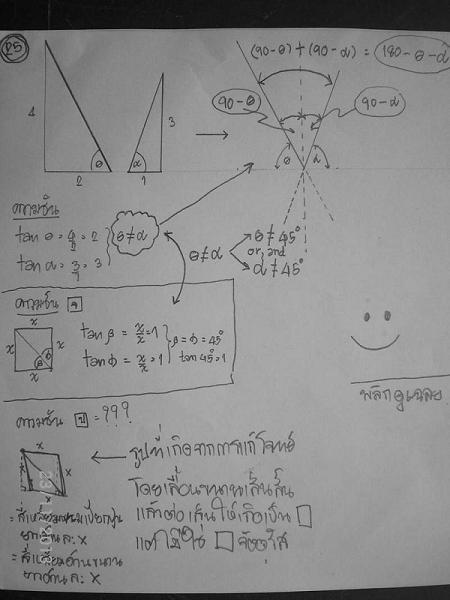 25
(90-θ) + (90-α) = 180-θ-α
90-θ
90-α
4
θ
2
α
1
3
θ
α
ความชัน
tan θ = 4/2 = 2
tan α = 3/1 = 3
θ≠α
θ≠α
θ ≠ 45°
or, and
α ≠ 45°
ความชัน
x
x
x
x
tan β = x/x = 1
tan φ = x/x = 1
β = φ = 45°
tan 45° = 1
พลิกดูเฉลย
ความชัน = ???
x
x
x
รูปที่เกิดจากการแก้โจทย์
โดยเลื่อนขนานเส้นสั้น
แล้วต่อเส้นให้เกิดเป็น □
แต่ไม่ใช่ □ จัตุรัส
= สี่เหลี่ยมขนมเปียกปูน
ยาวด้านละ x
= สี่เหลี่ยมด้านขนาน
ยาวด้านละ x